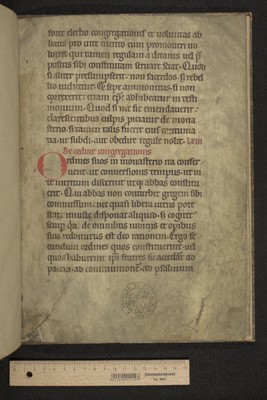 forte electio congregationis et voluntas ab
batis pro vite merito eum promoveri vo
luerit qui tamen regulam a decanis vel p̄
positis sibi constitutam servare sciat. Quod
si aliter presumpserit. non sacerdos. sꝫ rebel
lio iudicetur. Et sepe ammonitus. si non
correxerit. etiam ep̄c adhibeatur in testi
monium. Quod si nec sic emendaverit.
clarescentibus culpis. proiciatur de mona
sterio. si tamen talis fuerit eius contuma
cia. ut subdi. aut obedire regule nolit. LXIII
De ordine congregationis
Ordines suos in monasterio ita conser
vent. ut conversionis tempus. ut vi
te meritum discernit. utque abbas constitu
erit. Qui abbas non conturbet gregem sibi
commissum. nec quasi libera utens pote
state. iniuste disponat aliquid. sed cogitet
semper quia de omnibus iudiciis et operibus
suis redditurus est deo rationem. Ergo se
cundum ordines quos constituerit. vel
quos habuerint ipsi fratres. sic accedant ad
pacem. ad communionem. ad psalmum